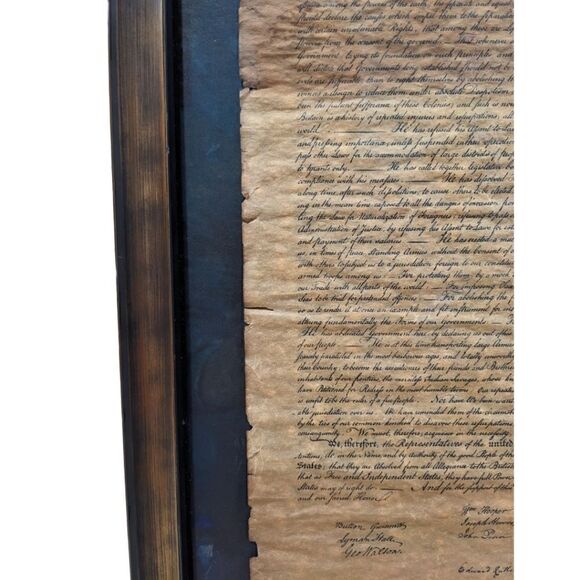 among the powers of the earth, the separate and equal
should declare the causes which impel them to the separation
with certain unalienable Rights, that among these are
powers from the consent of the governed — That whenever
Government, laying its foundation on such principles and
will dictate that Governments long established should not
are sufferable, than to right themselves by abolishing the
a design to reduce them under absolute Despotism
been the patient sufferance of these Colonies; and such is now
Britain is a history of repeated injuries and usurpations, all
world. — He has refused his Assent to
and pressing importance, unless suspended in their operation
pass other Laws for the accommodation of large districts of
to tyrants only. — He has called together legislative
compliance with his measures. — He has dissolved
along time, after such dissolutions, to cause others to be elected
ing in the mean time exposed to all the dangers of invasion
ling the Laws for Naturalization of Foreigners; refusing to pass
Administration of Justice, by refusing his Assent to Laws for
and payment of their salaries — He has erected a
us, in times of peace, Standing Armies without the Consent of
with others to subject us to a jurisdiction foreign to our
armed troops among us: — For protecting them, by a mock
our Trade with all parts of the world: — For imposing
Seas to be tried for pretended offences: — For abolishing the
so as to render it at once an example and fit instrument for
altering fundamentally the Forms of our Governments: —
He has abdicated Government here, by declaring us out of
of our people — He is at this time transporting large Armies
scarcely paralleled in the most barbarous ages, and totally
their Country, to become the executioners of their friends and Brethren
inhabitants of our frontiers, the merciless Indian Savages, whose
have Petitioned for Redress in the most humble terms: Our repeated
is unfit to be the ruler of a free people. Nor have We been
able jurisdiction over us. We have reminded them of the
by the ties of our common kindred to disavow these usurpations
consanguinity. We must, therefore, acquiesce in the necessity
We, therefore, the Representatives of the united
tentions, do, in the Name, and by Authority of the good People of
States; that they are Absolved from all Allegiance to the British
that as Free and Independent States, they have full Power
States may of right do. — And for the support of this
and our sacred Honor.
Button Gwinnett
Lyman Hall
Geo Walton.
Wm Hooper
Joseph Hewes
John Penn
Edward